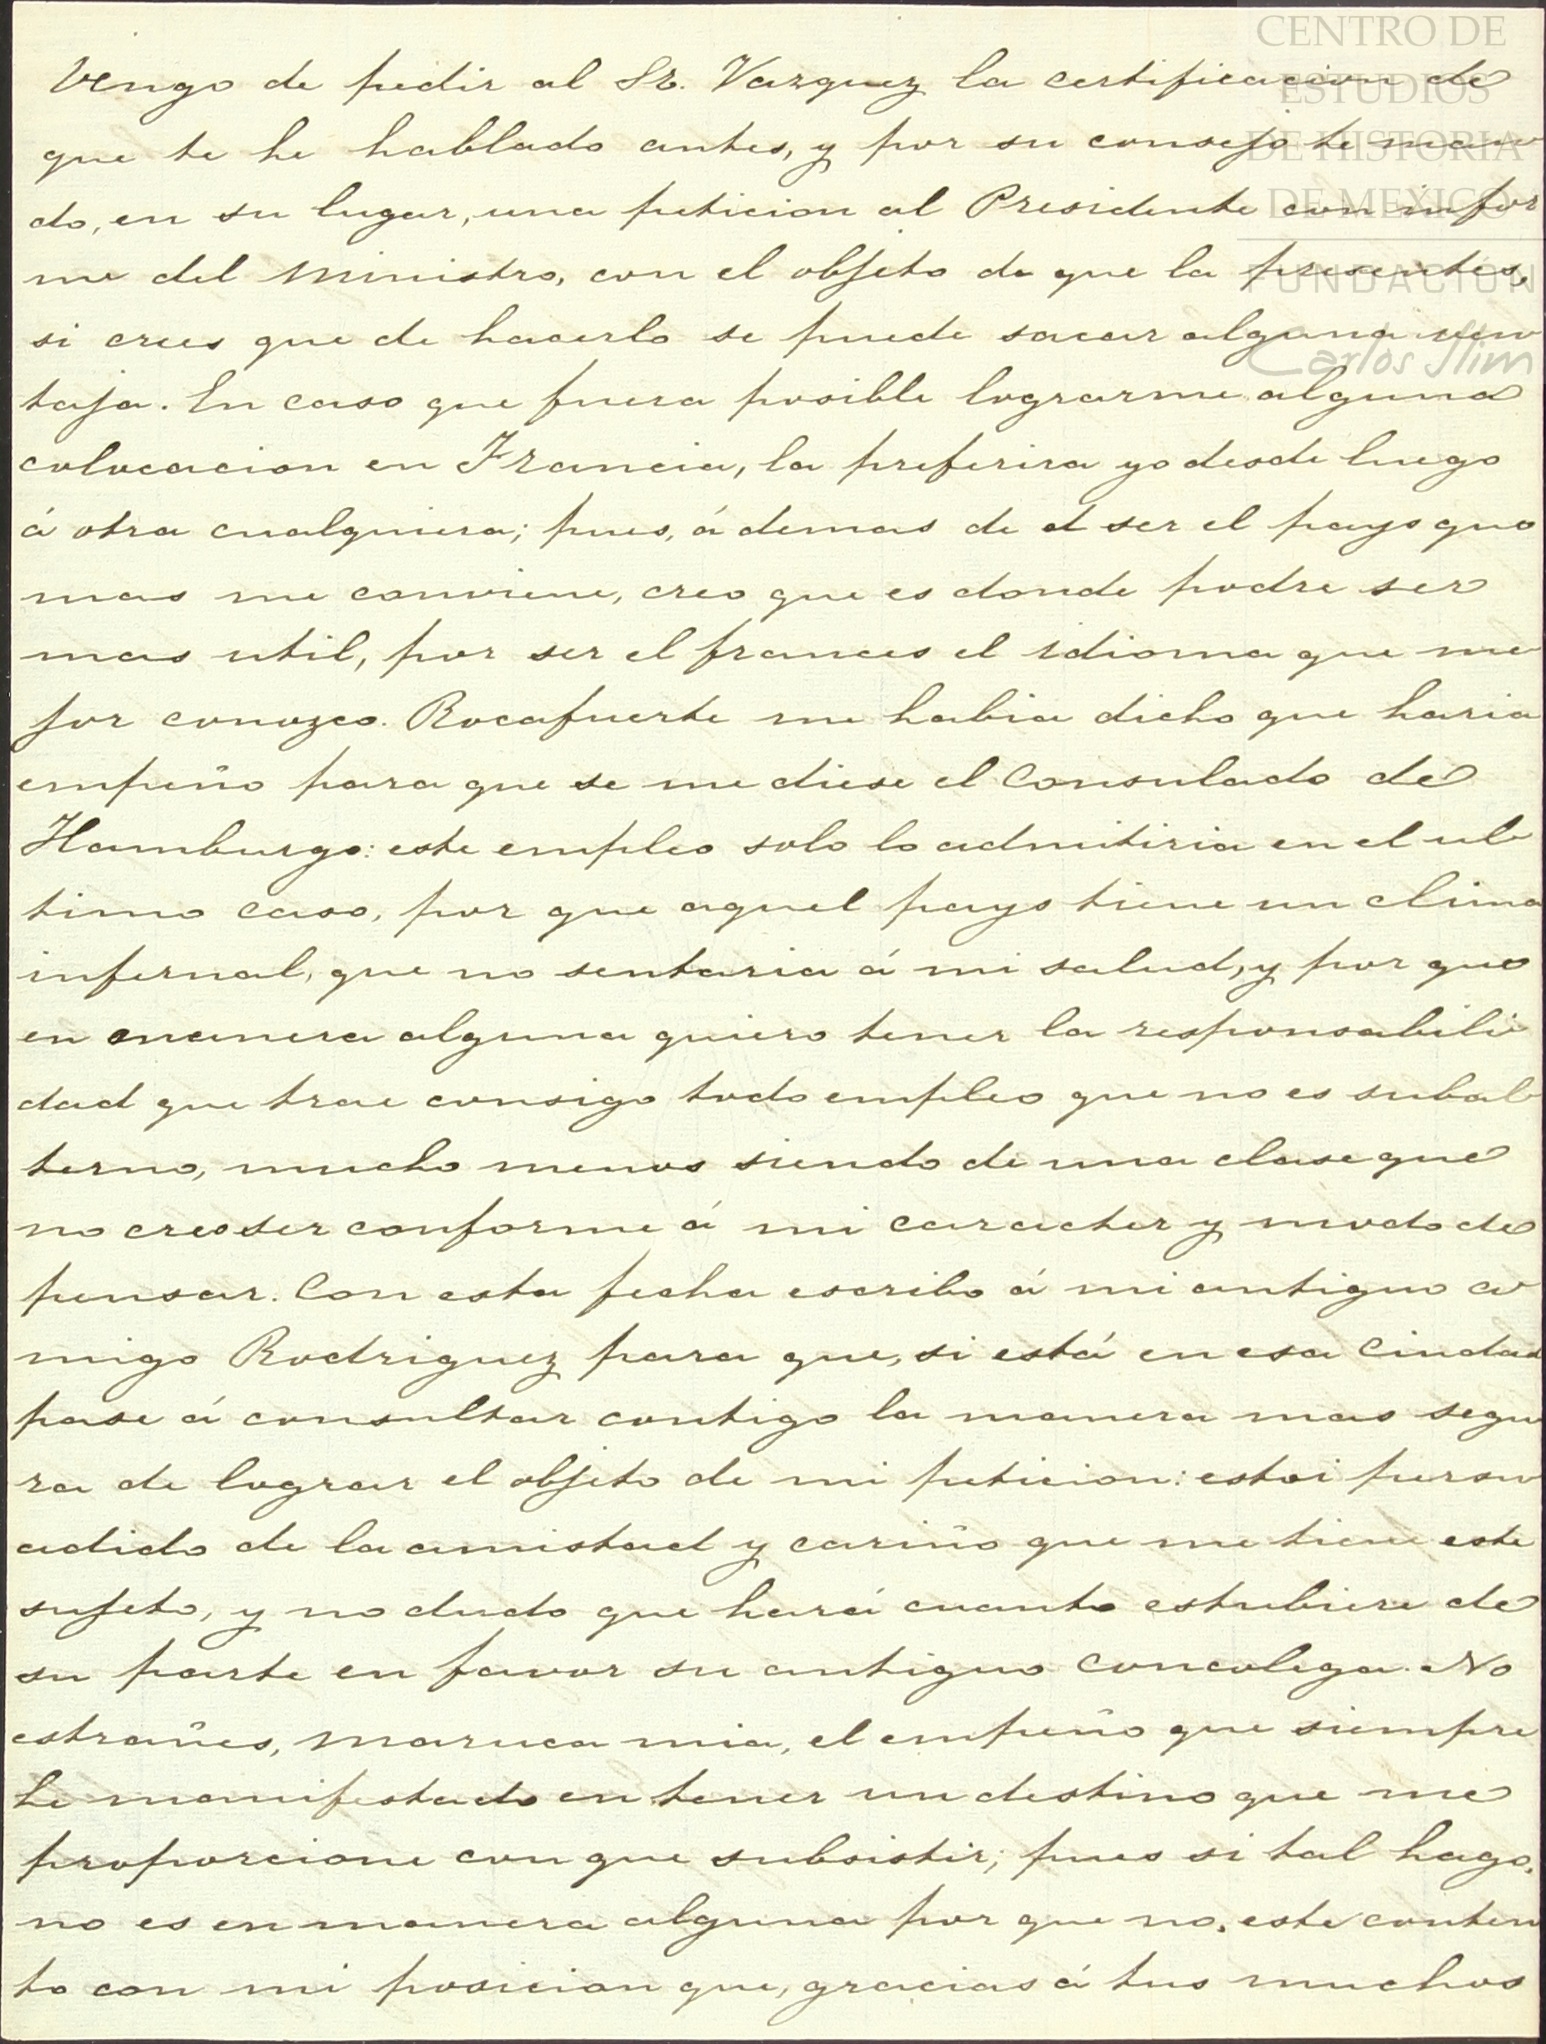 CENTRO DE
ESTUDIOS
DE HISTORIA
DE MEXICO
FUNDACIÓN
Carlos Slim
Vengo de pedir al Sr. Vazquez la certificacion de
que te he hablado antes, y por su consejo te man
do, en su lugar, una peticion al Presidente con infor
me del Ministro, con el objeto de que la presentes,
si crees que de hacerlo se puede sacar alguna ven
taja. En caso que fuera posible lograrme alguna
colocacion en Francia, la preferira yo desde luego
á otra cualquiera; pues, á demas de el ser el pays que
mas me conviene, creo que es donde podre ser
mas util, por ser el frances el idioma que me
jor conozco. Rocafuerte me habia dicho que haria
empeño para que se me diese el Consulado de
Hamburgo: este empleo solo lo admitiria en el ul
timo caso, por que aquel pays tiene un clima
infernal, que no sentaria á mi salud, y por que
en manera alguna quiero tener la responsabili
dad que trae consigo todo empleo que no es subal
terno, mucho menos siendo de una clase que
no creo ser conforme á mi caracter y modo de
pensar. Con esta fecha escribo á mi antiguo a
migo Rodriguez para que, si está en esa Ciudad
pase á consultar contigo la manera mas segu
ra de lograr el objeto de mi peticion: estoi persu
adido de la amistad y cariño que me tiene este
sujeto, y no dudo que hará cuanto estubiere de
su parte en favor su antiguo concolega. No
estrañes, Maruca mia, el empeño que siempre
he manifestado en tener un destino que me
proporcione con que subsistir; pues si tal hago,
no es en manera alguna por que no este conten
to con mi posicion que, gracias á tus muchos